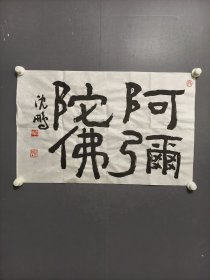 阿彌
陀佛
沈鵬